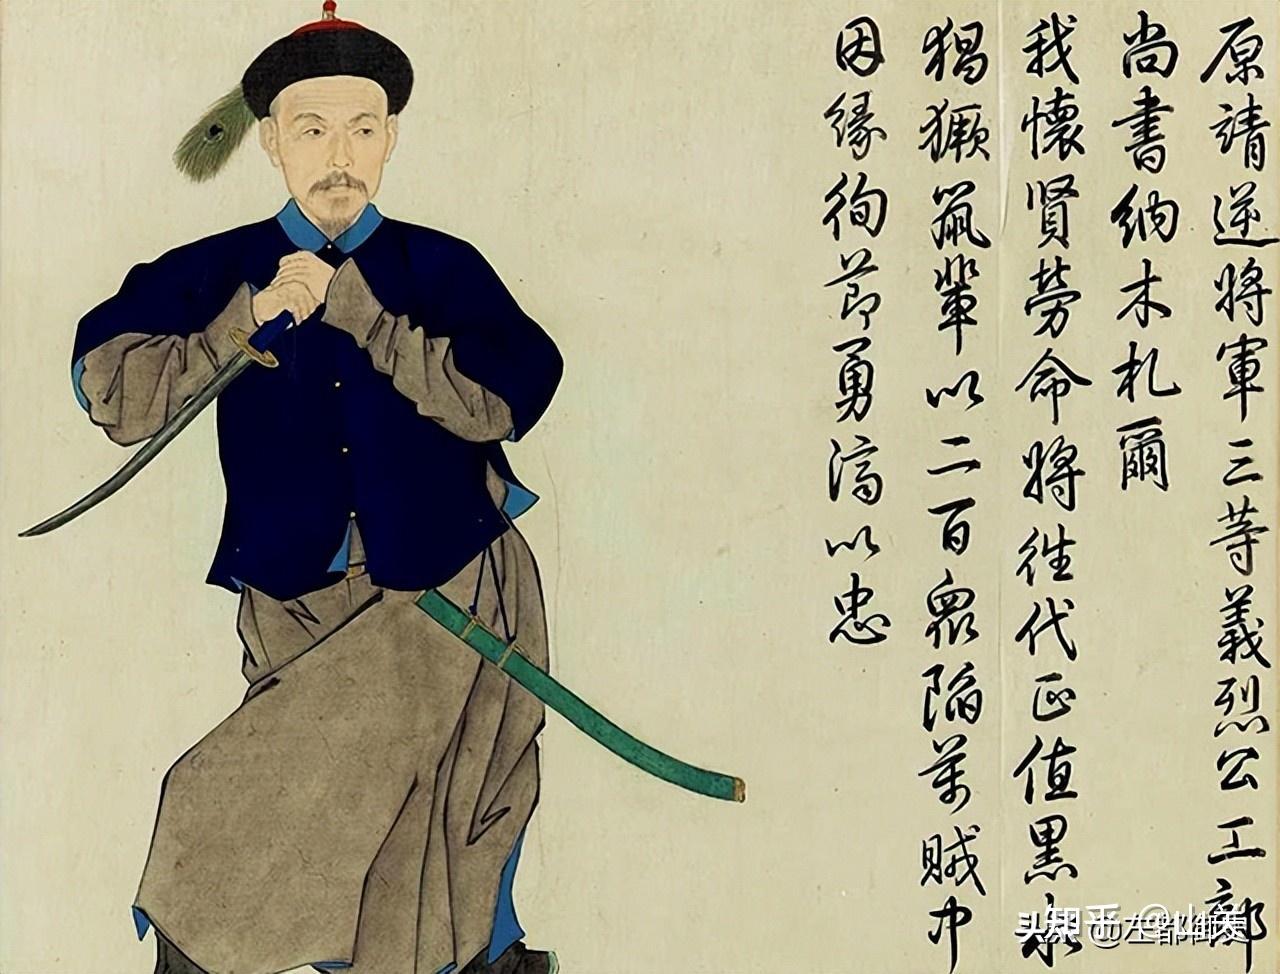 原靖逆將軍三等義烈公工部
尚書納木札爾
我懷賢勞命將往代正值黑水
猖獗鼠輩以二百眾陷萬賊中
因緣徇節勇濟以忠
知乎
头条 @左都御史